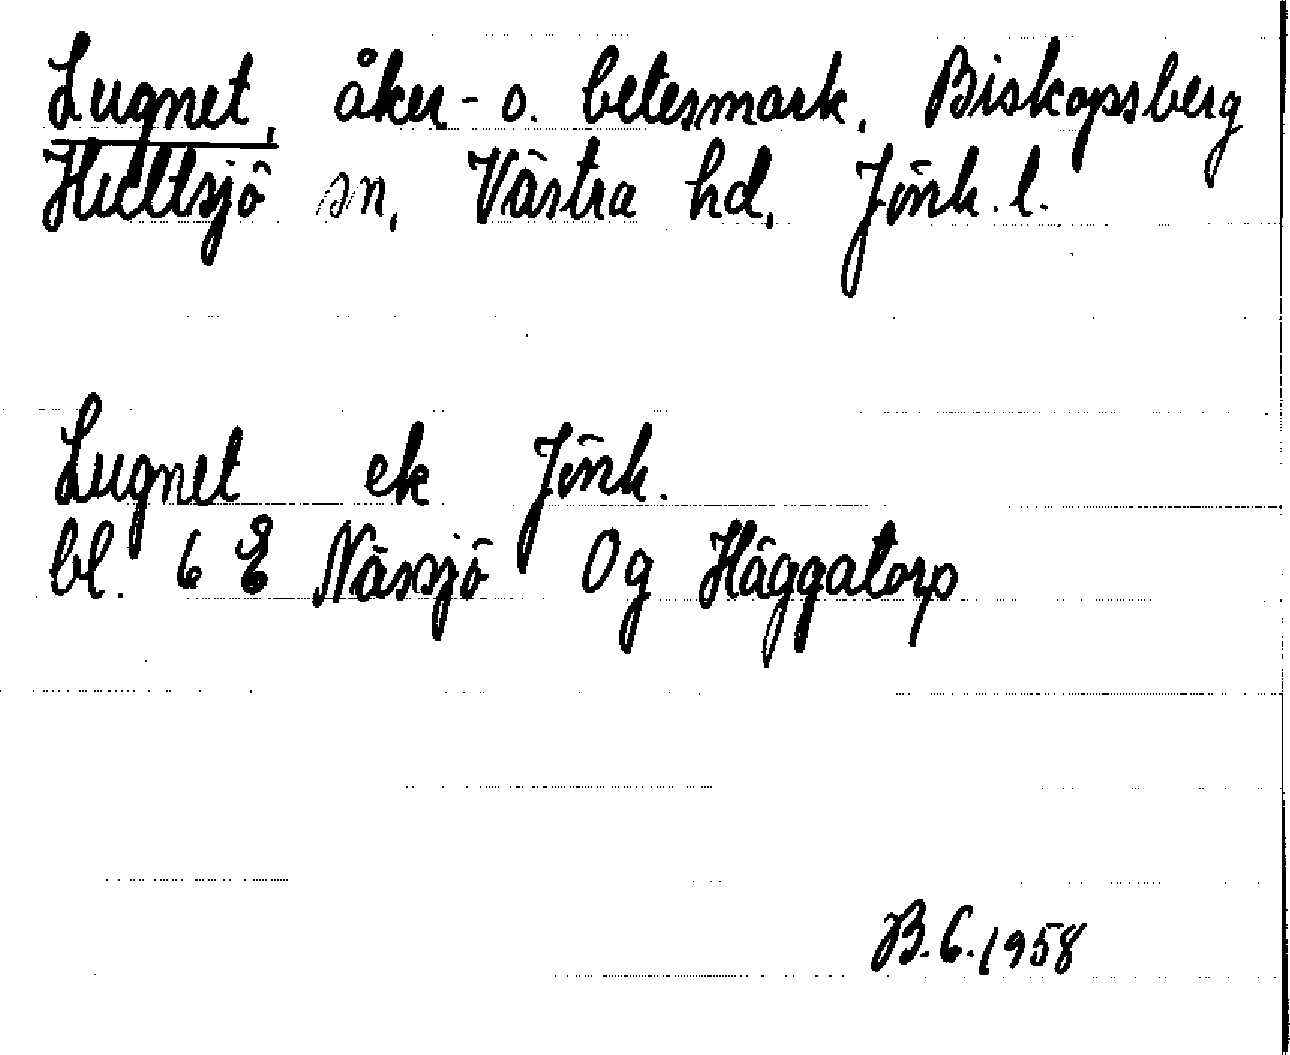 Lugnet, åker- o. betesmark, Biskopsberg
Hultsjö sn, Västra hd, Jönk. l.
Lugnet ek Jönk.
bl. 6 E Nässjö 0g Häggatorp
B.C. 1958